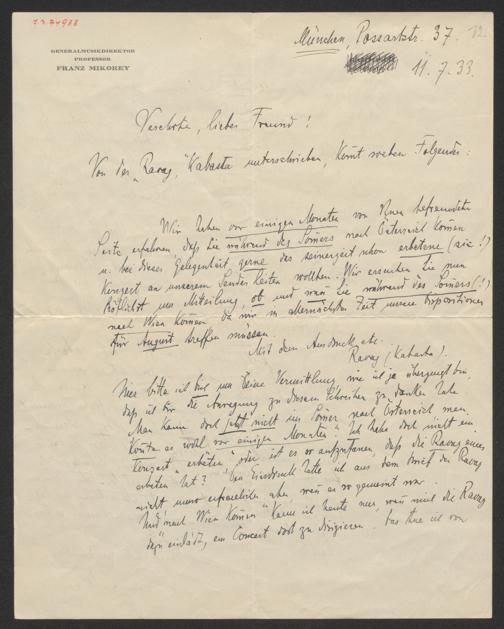 I.N. 74988
GENERALMUSIKDIREKTOR
PROFESSOR
FRANZ MIKOREY
München, Possartstr. 37.
11.7.33.
Verehrter, lieber Freund!
Von der "Ravag", Kabasta unterschrieben, kommt soeben Folgendes:
Wir haben vor einigen Monaten von Ihnen befreundeter
Seite erfahren, daß Sie während des Sommers nach Österreich kommen
u. bei dieser Gelegenheit gerne das seinerzeit schon erbetene (sic!)
Konzert an unserem Sender leiten wollten. Wir ersuchen Sie nun
höflichst um Mitteilung, ob und wann Sie während des Sommers (!)
nach Wien kommen da wir in allernächster Zeit unsere Dispositionen
für August treffen müssen.
Mit dem Ausdruck etc.
Ravag (Kabasta).
Nun bitte ich Sie um Deine Vermittlung, wie ich ja überzeugt bin
daß ich Dir die Anregung zu diesem Schreiben zu danken habe
Man kann doch jetzt nicht im Sommer nach Österreich
wohl vor einigen Monaten." Ich habe doch nicht ein
Konzert "erbeten" oder ist es so aufzufassen, daß die Ravag eines
erbeten hat? Den Eindruck hatte ich aus dem Brief der Ravag
nicht umso erfreulicher aber, wenn es so gemeint war.
Und "nach Wien kommen" kann ich heute nur, wenn mich die Ravag
dazu einlädt, ein Concert dort zu dirigieren.